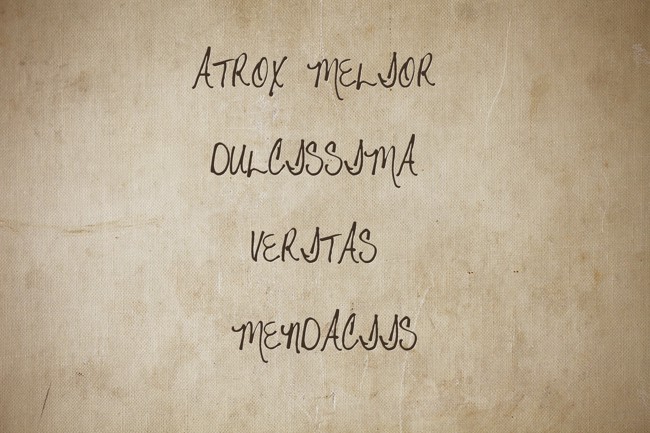 ATROX MELIOR
DULCISSIMA
VERITAS
MENDACIIS